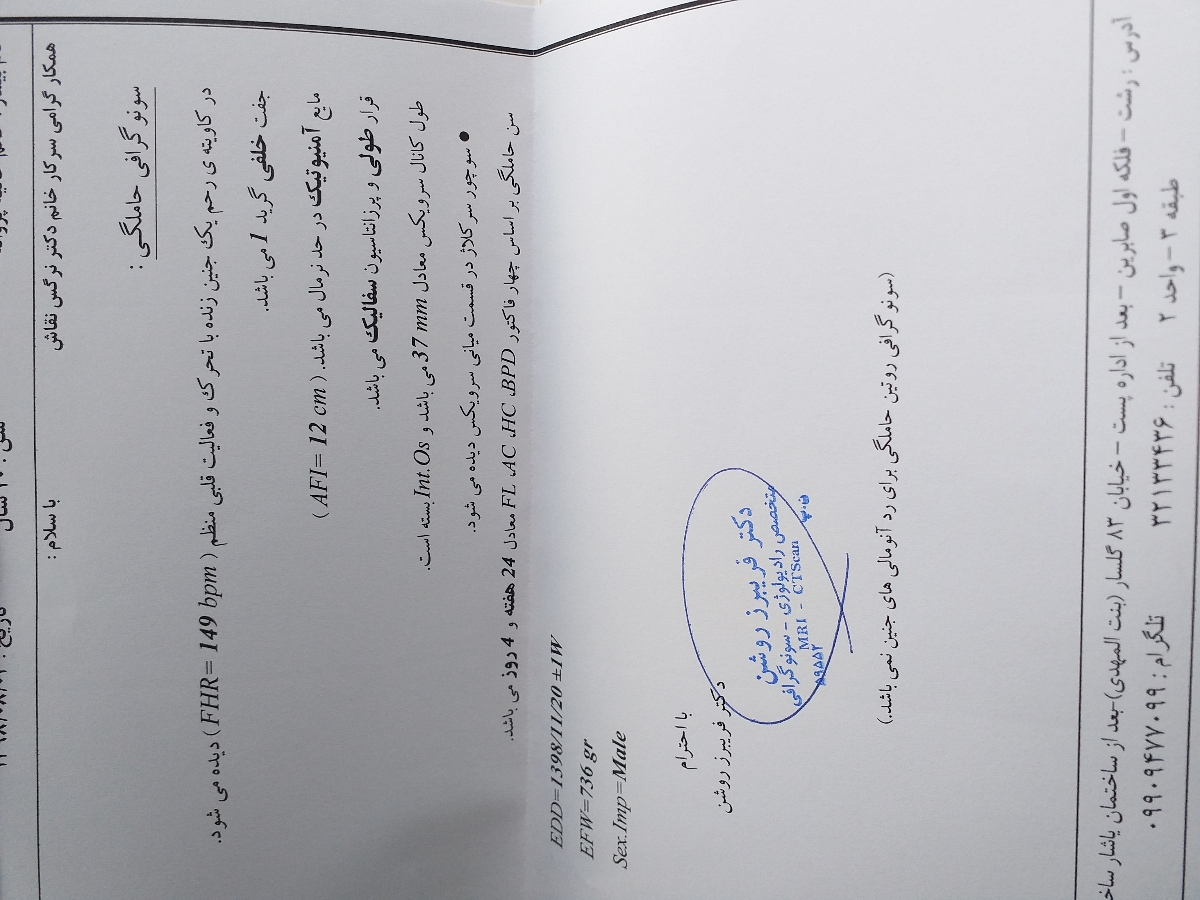 همکار گرامی سرکار خانم دکتر نرگس نقاش
با سلام :
سونوگرافی حاملگی :
در کاویته ی رحم یک جنین زنده با تحرک و فعالیت قلبی منظم ( FHR= 149 bpm ) دیده می شود.
جفت خلفی گرید 1 می باشد.
مایع آمنیوتیک در حد نرمال می باشد. ( AFI= 12 cm )
قرار طولی و پرزانتاسیون سفالیک می باشد.
طول کانال سرویکس معادل 37 mm می باشد و Int.Os بسته است.
● سوچور سرکلاژ در قسمت میانی سرویکس دیده می شود.
سن حاملگی بر اساس چهار فاکتور FL .AC .HC .BPD معادل 24 هفته و 4 روز می باشد.
EDD=1398/11/20 ±1W
EFW=736 gr
Sex.Imp=Male
با احترام
دکتر فریبرز روشن
دکتر فریبرز روشن
متخصص رادیولوژی - سونوگرافی
MRI - CTScan
ن.پ ۵۹۵۵۲
(سونوگرافی روتین حاملگی برای رد آنومالی های جنین نمی باشد.)
آدرس : رشت - فلکه اول صابرین - بعد از اداره پست - خیابان ۸۳ گلسار (بنت المهدی)-بعد از ساختمان یاشار
طبقه ۳ - واحد ۲ تلفن : ۳۲۱۳۳۴۳۶ تلگرام : ۰۹۹۰۹۴۷۷۰۹۹